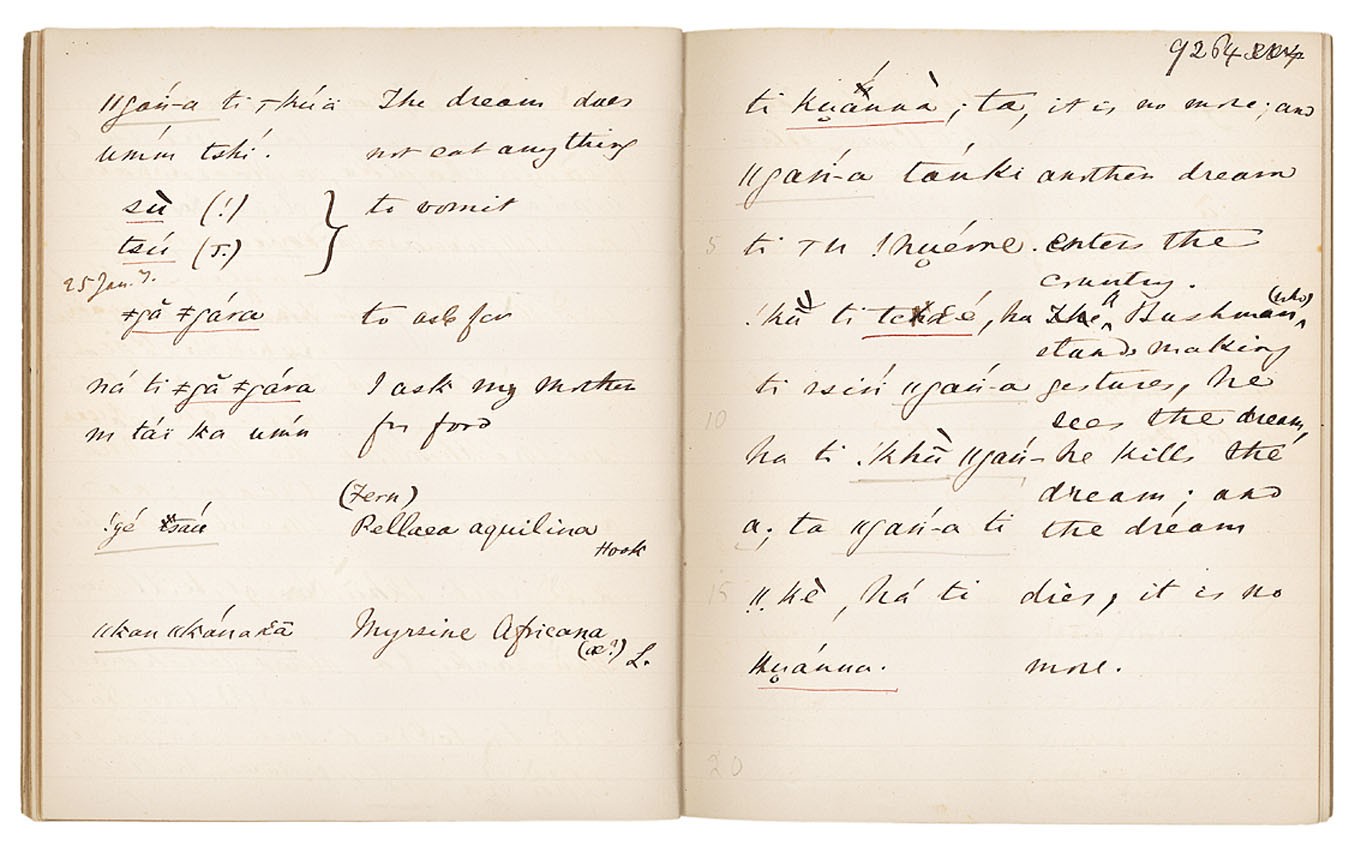 ǁgań-a ti ꞇ kúä The dream does
umḿ tshí. not eat anything
sù (!) to vomit
tsú (ꞇ.)
25 Jan. 7.
ǂgă ǂgára to ask for
ná ti ǂgă ǂgára I ask my mother
m táï ka umḿ for food
(Fern)
!gé tsań Pellaea aquilina
Hook
ǁkan ǁkánaxā Myrsine Africana
(æ?) L.
9264
ti kṷánnà ; ta, it is no more; and
ǁgań-a tánki another dream
5 ti ꞇ n !nṷéme. enters the
country.
!kū ti te dé, ha The Bushman, (who)
stands making
ti ꞇsiń ǁgań-a gestures, he
10 sees the dream,
ha ti !khù ǁgań- he kills the
dream; and
a; ta ǁgań-a ti the dream
15 ǁkè, há ti dies, it is no
kṷánna. more.
20